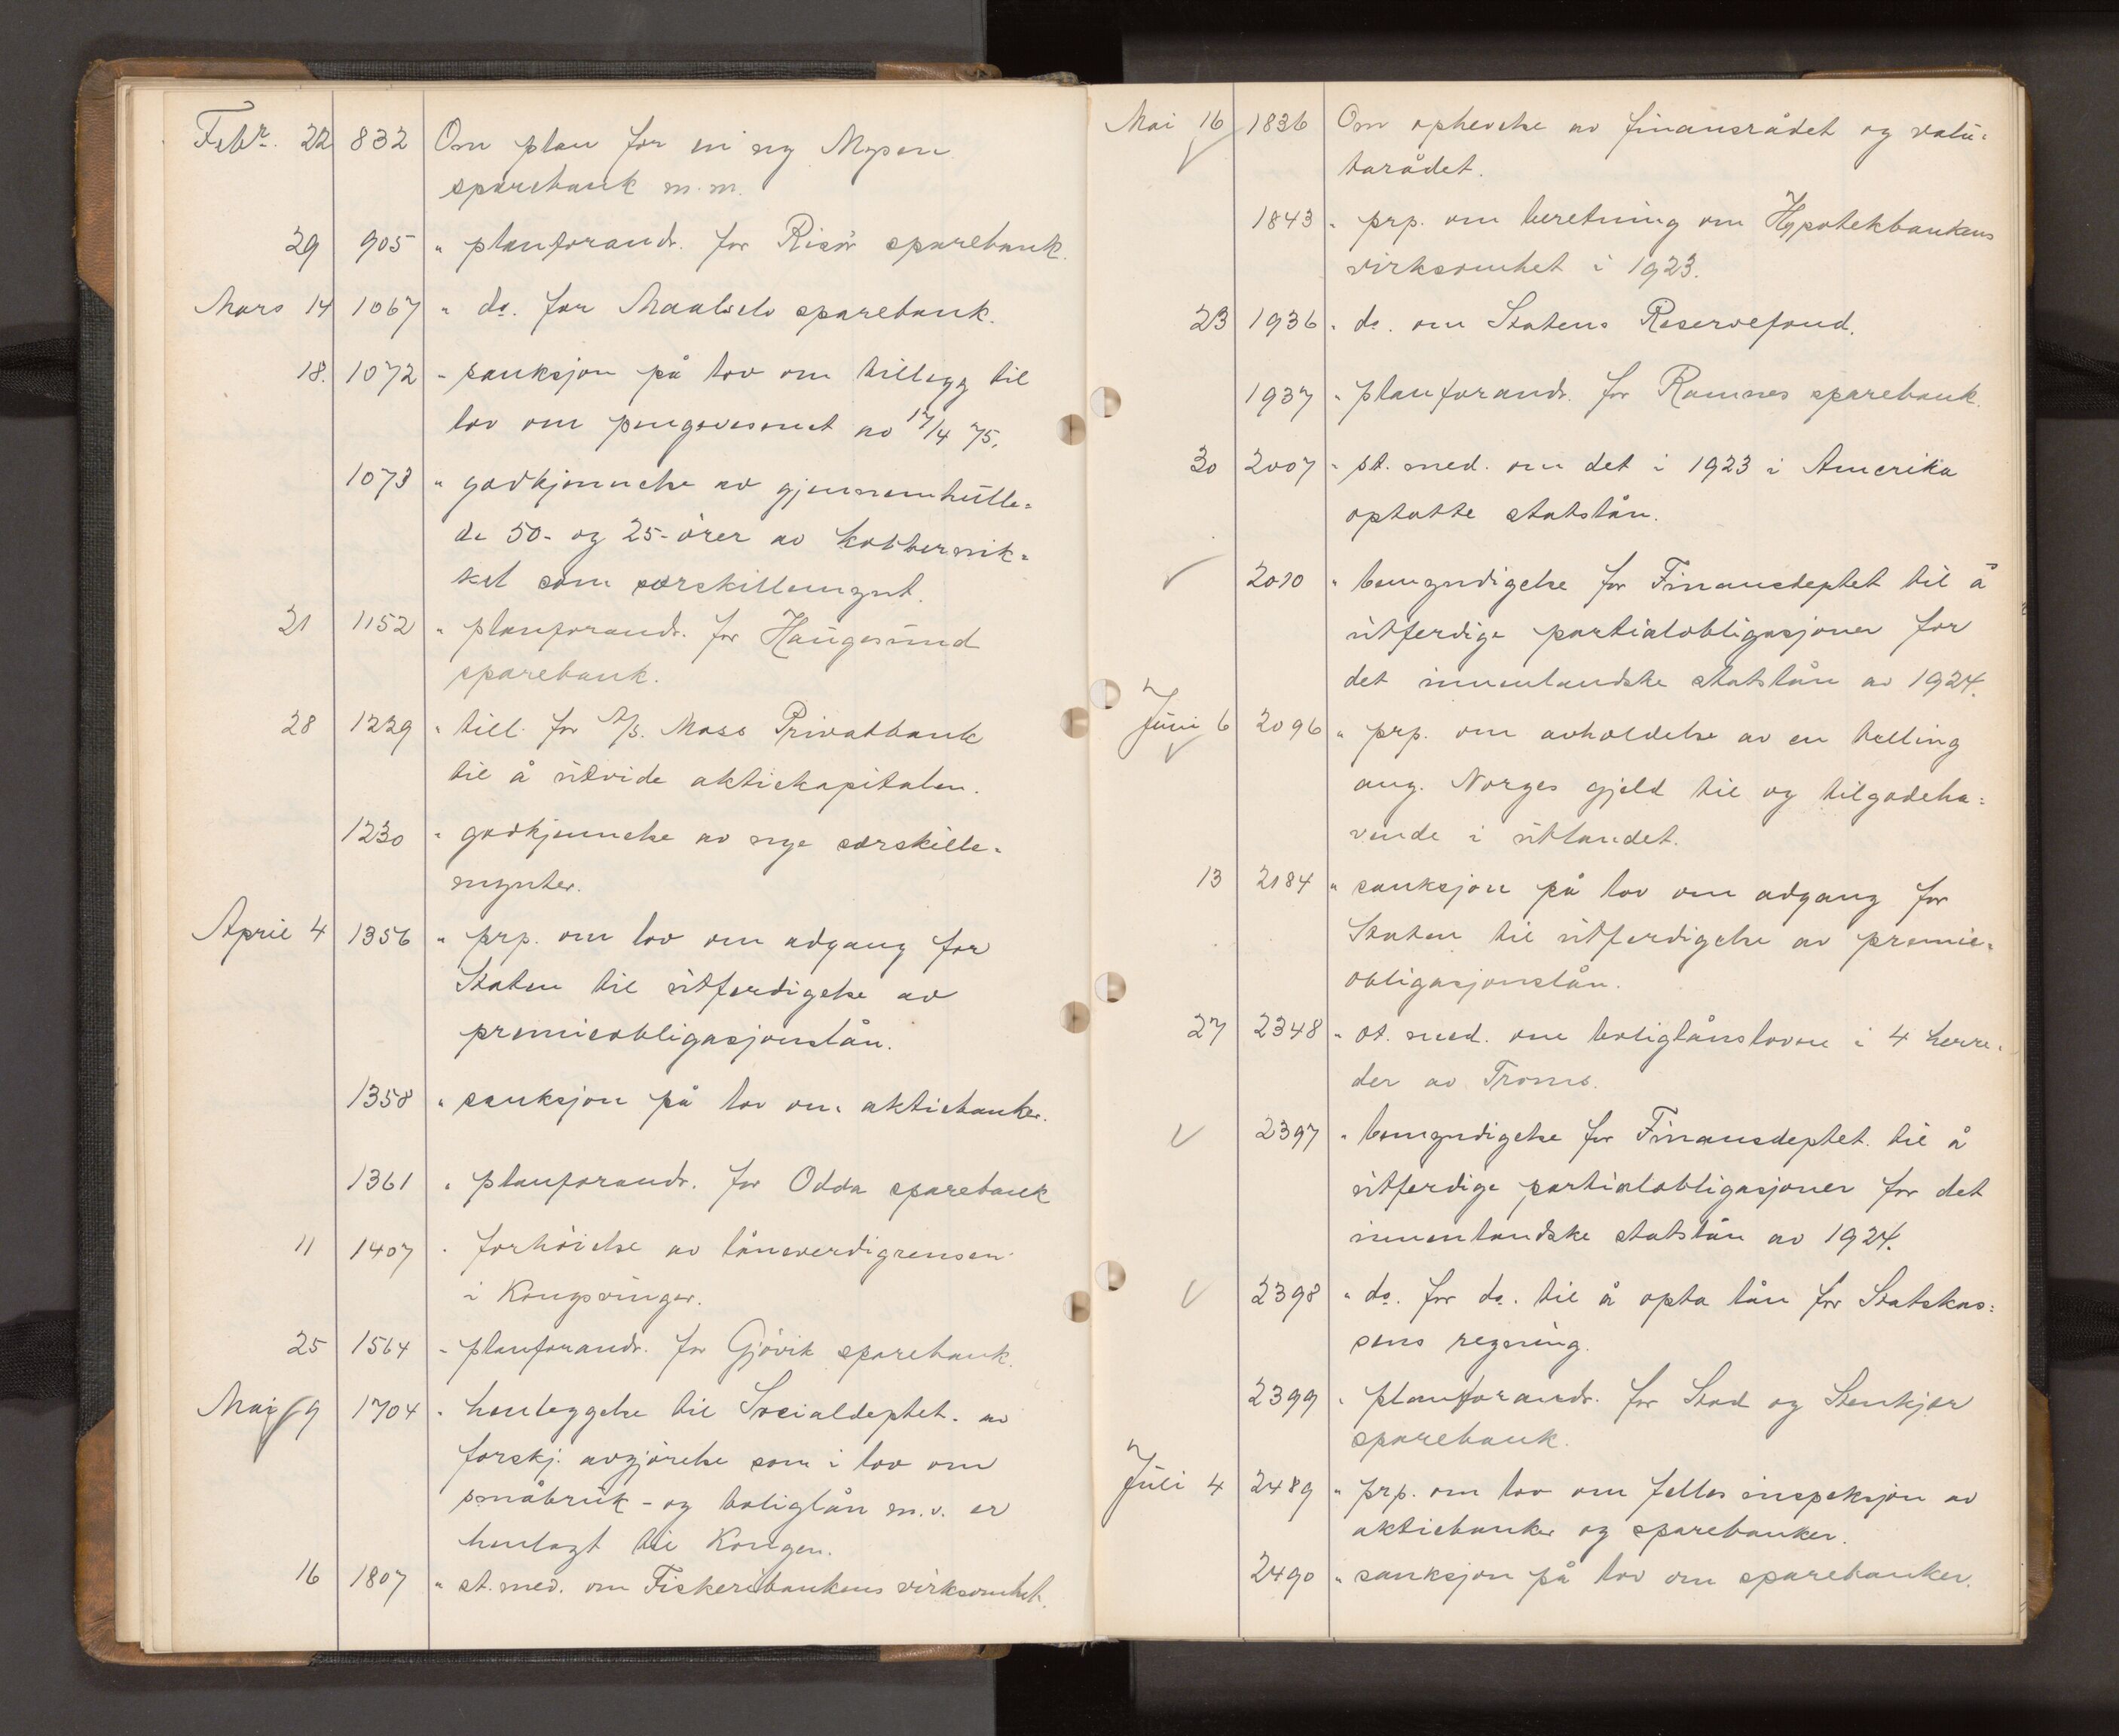 Febr. 22 832 Om plan for en ny Mysen
sparebank m.m.
29 905 " planforandr. for Risör sparebank.
Mars 14 1067 " do. for Maalselv sparebank.
18. 1072 " sanksjon på lov om tillegg til
lov om pengevesenet av 17/4 75.
1073 " godkjennelse av gjennemhulle=
de 50- og 25-örer av kobbernik=
kel som særskillemynt.
21 1152 " planforandr. for Haugesund
sparebank.
28 1229 " till. for A/S. Moss Privatbank
til å utvide aktiekapitalen.
1230 " godkjennelse av nye særskille=
mynter.
April 4 1356 " prp. om lov om adgang for
Staten til utferdigelse av
premieobligasjonslån.
1358 " sanksjon på lov om aktiebanker.
1361 " planforandr. for Odda sparebank
11 1407 " forhöielse av låneverdigrensen
i Kongsvinger.
25 1564 " planforandr. for Gjövik sparebank.
Mai 9 1704 " henleggelse til Socialdeptet. av
forskj. avgjörelse som i lov om
småbruk- og boliglån m.v. er
henlagt til Kongen.
16 1807 " st. med. om Fiskeribankens virksomhet.
Mai 16 1836 Om ophevelse av finansrådet og valu=
tarådet.
1843 " prp. om beretning om Hypotekbankens
virksomhet i 1923.
23 1936 " do. om Statens Reservefond.
1937 " planforandr. for Ramnes sparebank.
30 2007 " st. med. om det i 1923 i Amerika
optatte statslån.
2010 " bemyndigelse for Finansdeptet til å
utferdige partialobligasjoner for
det innenlandske statslån av 1924.
Juni 6 2096 " prp. om avholdelse av en telling
ang. Norges gjeld til og tilgodeha=
vende i utlandet.
13 2184 " sanksjon på lov om adgang for
Staten til utferdigelse av premie=
obligasjonslån.
27 2348 " ot. med. om boliglånslovene i 4 herre=
der av Troms.
2397 " bemyndigelse for Finansdeptet. til å
utferdige partialobligasjoner for det
innenlandske statslån av 1924.
2398 " do. for do. til å opta lån for Statskas=
sens regning.
2399 " planforandr. for Stod og Stenkjær
sparebank.
Juli 4 2489 " prp. om lov om felles inspeksjon av
aktiebanker og sparebanker.
2490 " sanksjon på lov om sparebanker.